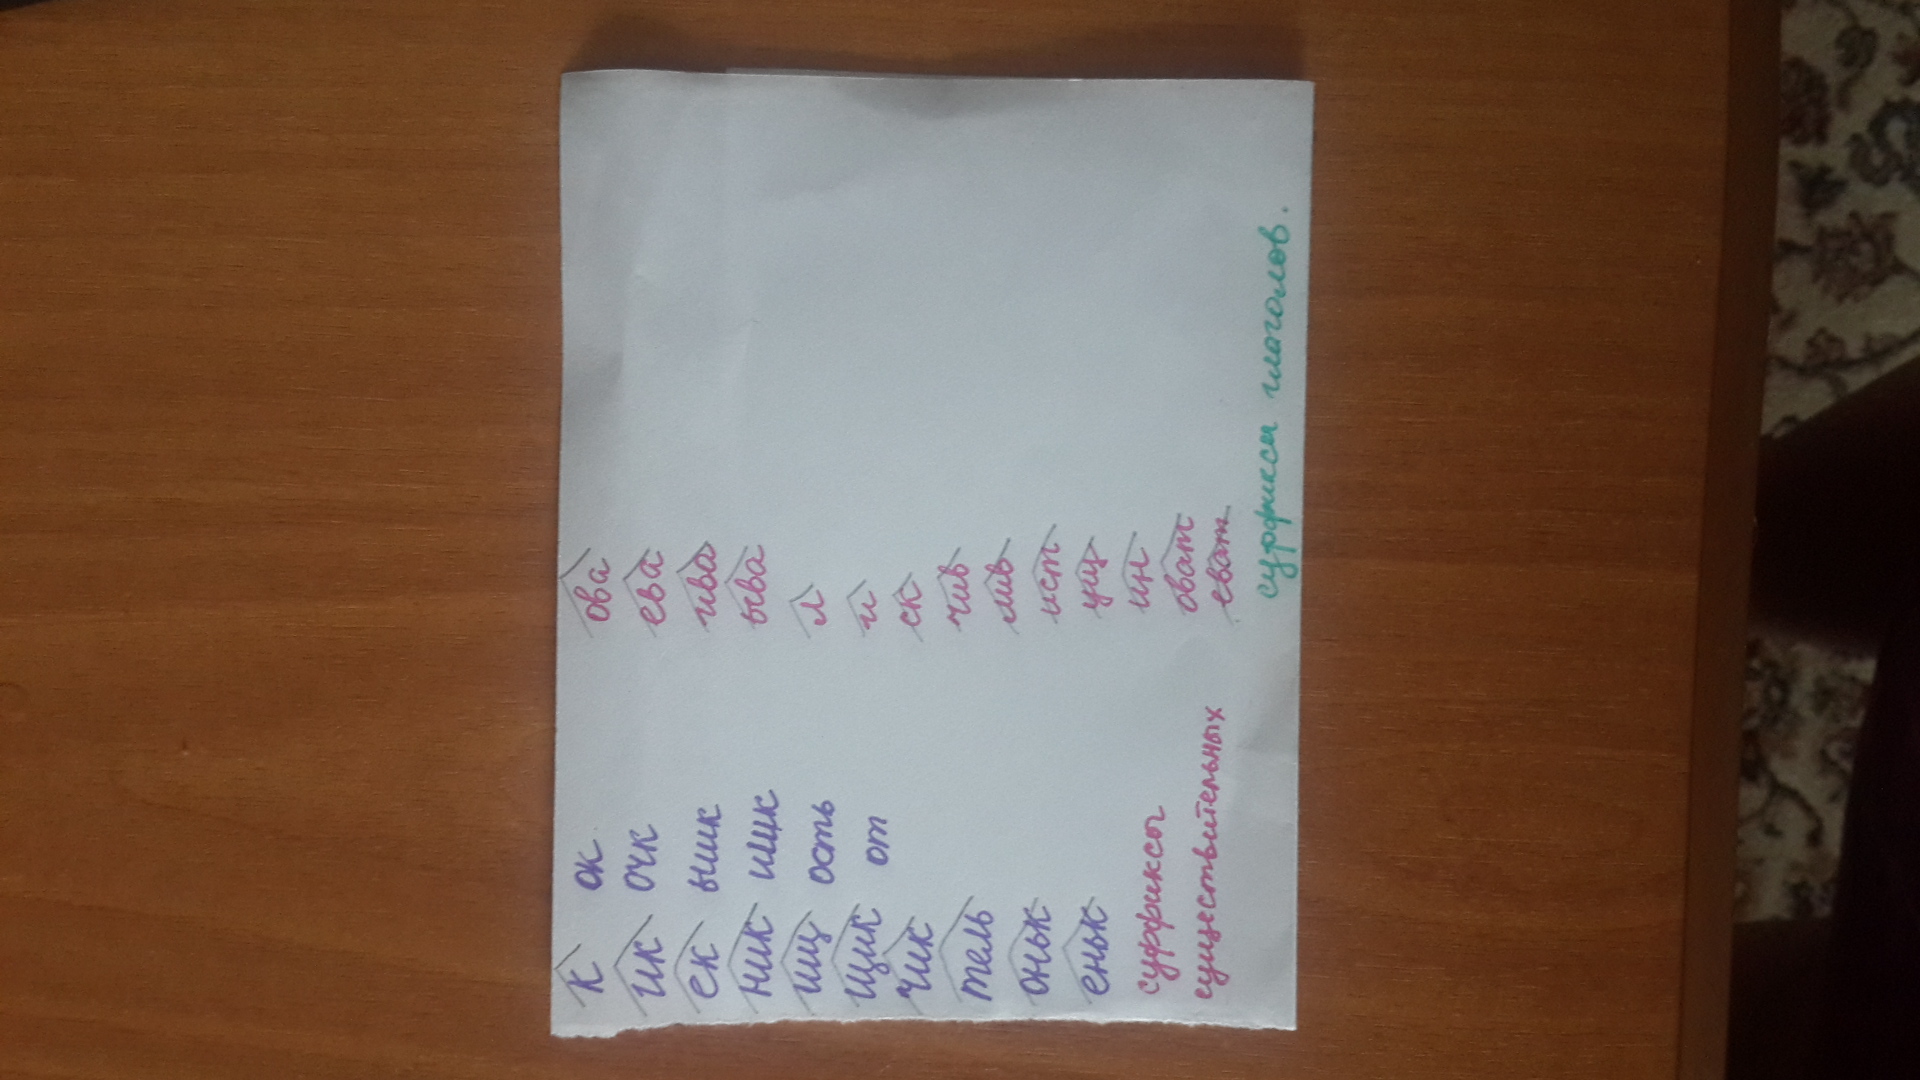 к
ик
ек
ник
ищ
щик
чик
тель
оньк
еньк
ок
очк
ышк
ишк
ость
от
суффиксы
существительных
ова
ева
ива
ыва
л
и
ск
чив
лив
ист
ущ
ин
оват
еват
суффиксы глаголов.